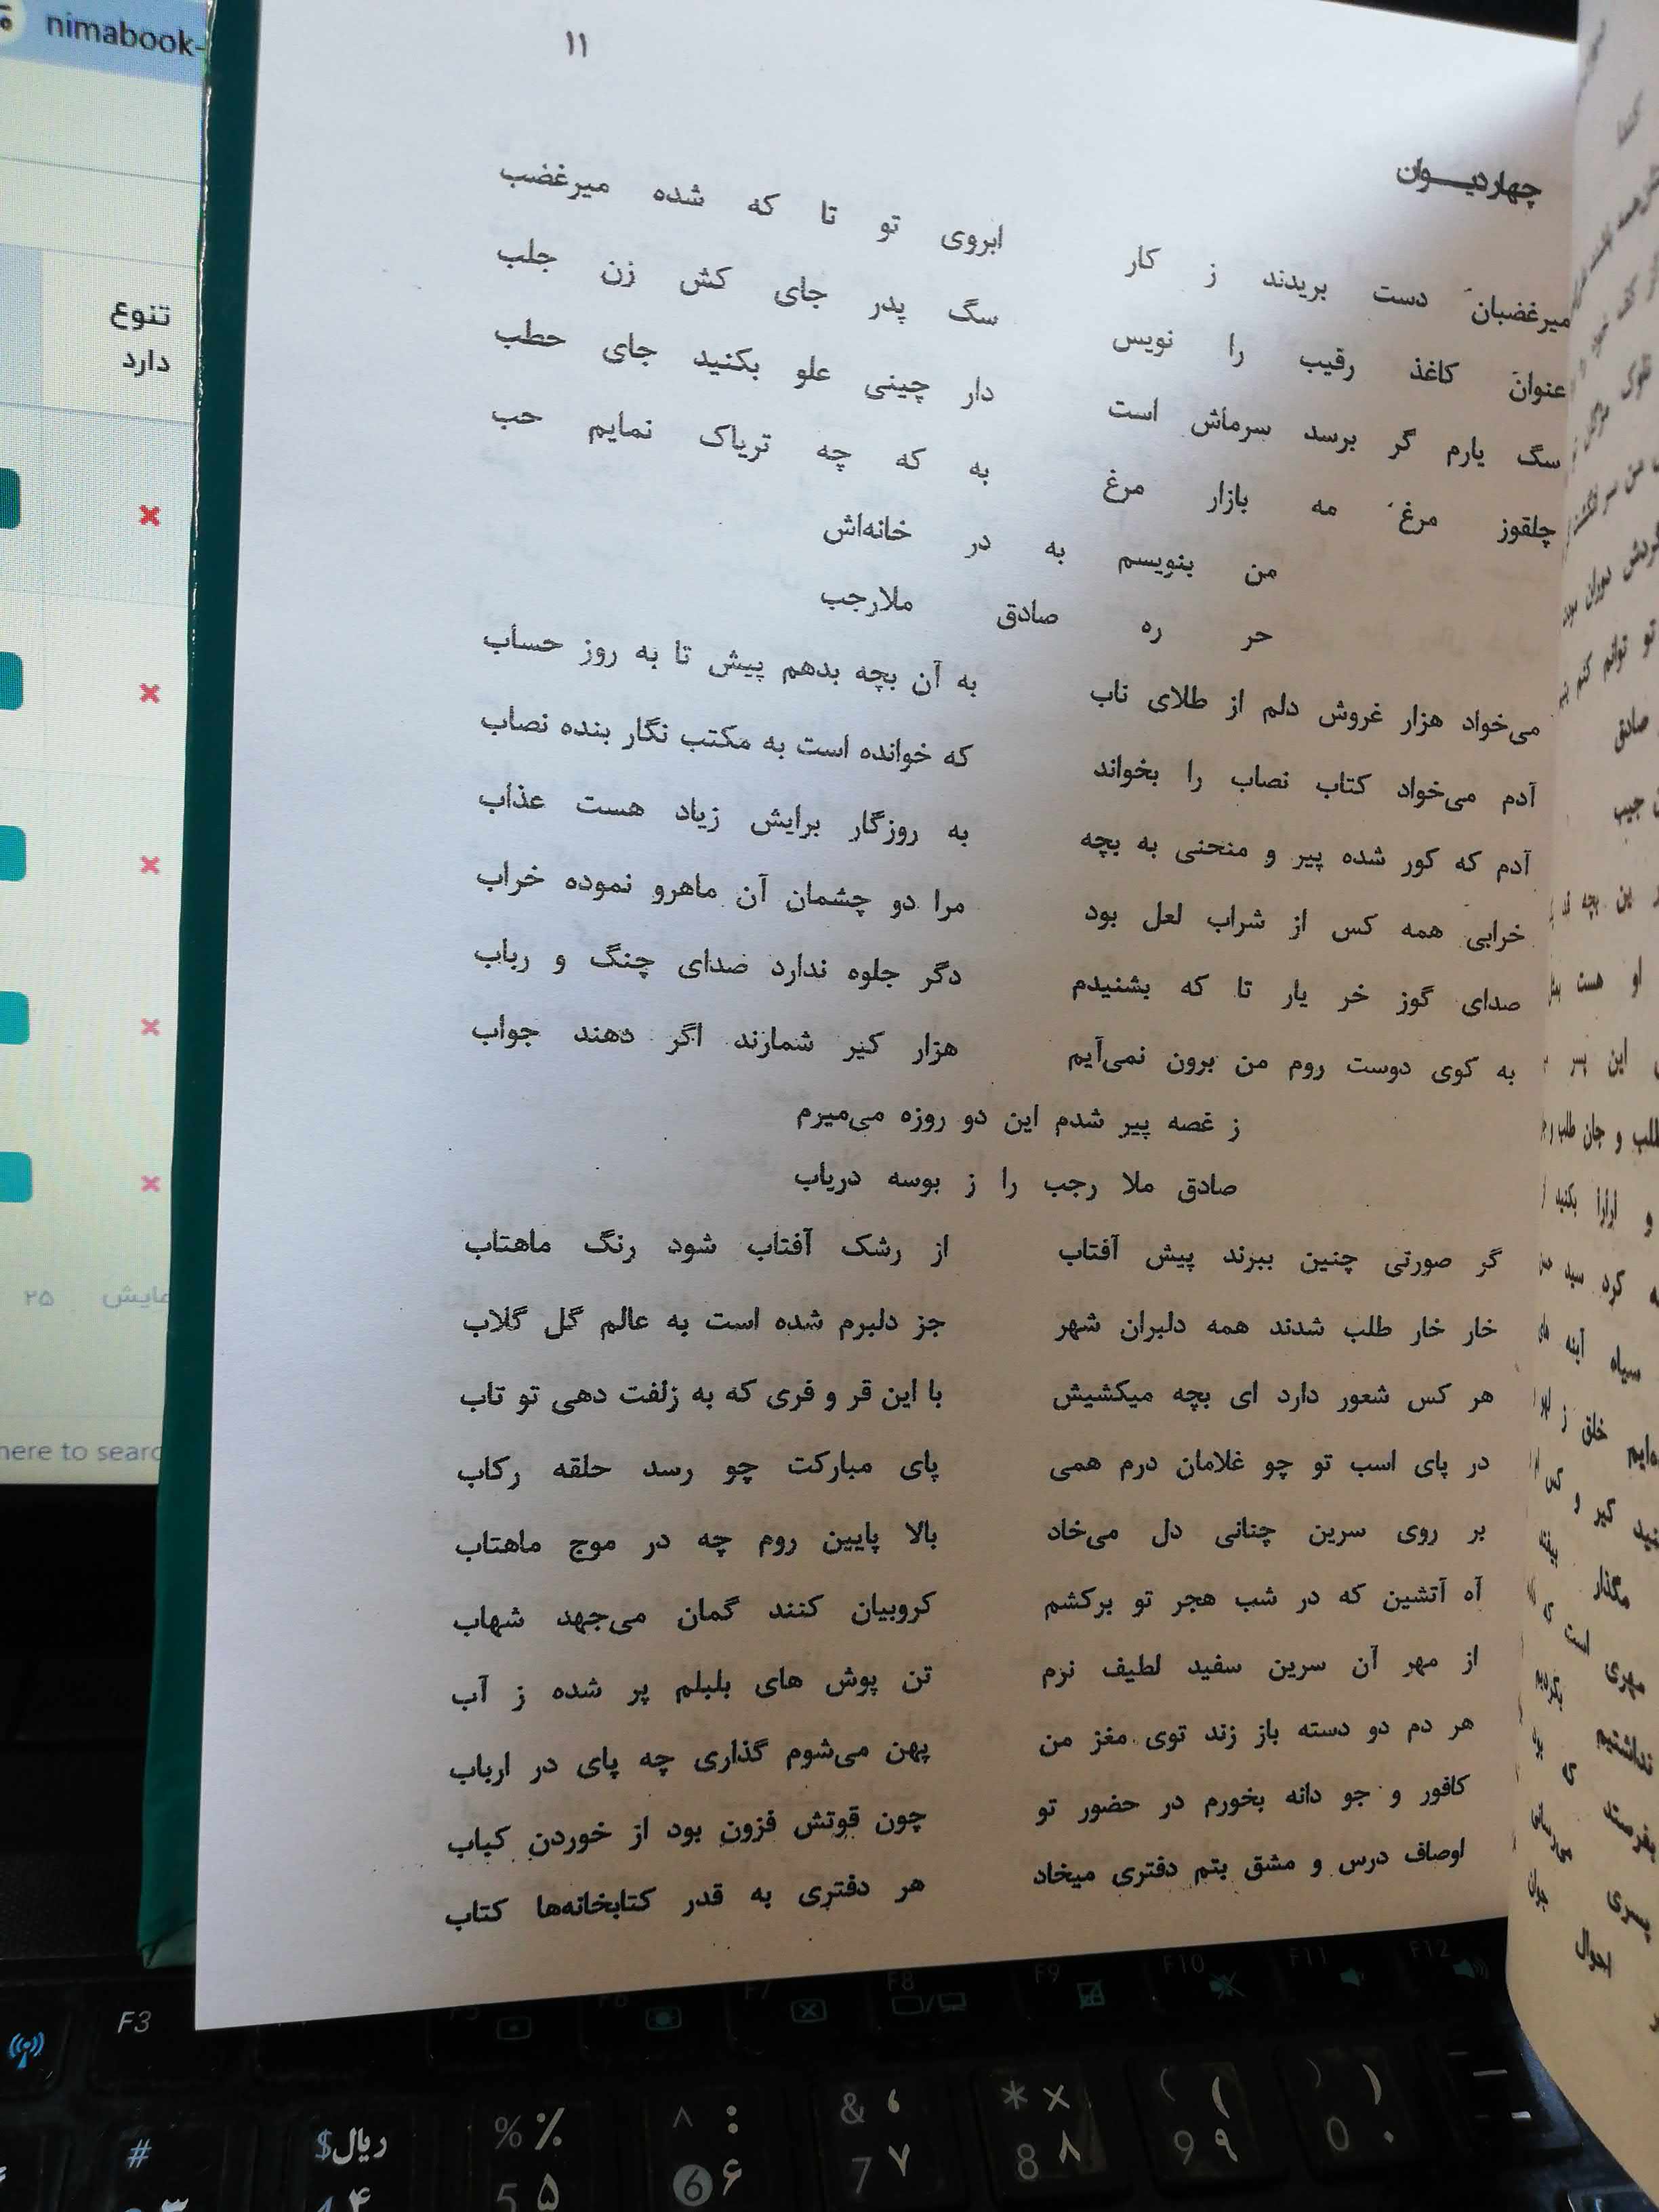 nimabook-
تنوع
دارد
۲۵
here to searc
۱۱
چهاردیـوان
میرغضبان دست بریدند ز کار
ابروی تو تا که شده میرغضب
عنوان کاغذ رقیب را نویس
سگ پدر جای کش زن جلب
سگ یارم گر برسد سرماش است
دار چینی علو بکنید جای حطب
چلقوز مرغ مه بازار مرغ
به که چه تریاک نمایم حب
من بنویسم به در خانه‌اش
حر ره صادق ملارجب
می‌خواد هزار غروش دلم از طلای ناب
به آن بچه بدهم پیش تا به روز حساب
آدم می‌خواد کتاب نصاب را بخواند
که خوانده است به مکتب نگار بنده نصاب
آدم که کور شده پیر و منحنی به بچه
به روزگار برایش زیاد هست عذاب
خرابی همه کس از شراب لعل بود
مرا دو چشمان آن ماهرو نموده خراب
صدای گوز خر یار تا که بشنیدم
دگر جلوه ندارد صدای چنگ و رباب
به کوی دوست روم من برون نمی‌آیم
هزار کیر شمارند اگر دهند جواب
ز غصه پیر شدم این دو روزه می‌میرم
صادق ملا رجب را ز بوسه دریاب
گر صورتی چنین ببرند پیش آفتاب
از رشک آفتاب شود رنگ ماهتاب
خار خار طلب شدند همه دلبران شهر
جز دلبرم شده است به عالم گل گلاب
هر کس شعور دارد ای بچه میکشیش
با این قر و فری که به زلفت دهی تو تاب
در پای اسب تو چو غلامان درم همی
پای مبارکت چو رسد حلقه رکاب
بر روی سرین چنانی دل می‌خاد
بالا پایین روم چه در موج ماهتاب
آه آتشین که در شب هجر تو برکشم
کروبیان کنند گمان می‌جهد شهاب
از مهر آن سرین سفید لطیف نرم
تن پوش های بلبلم پر شده ز آب
هر دم دو دسته باز زند توی مغز من
پهن می‌شوم گذاری چه پای در ارباب
کافور و جو دانه بخورم در حضور تو
چون قوتش فزون بود از خوردن کباب
اوصاف درس و مشق بتم دفتری میخاد
هر دفتری به قدر کتابخانه‌ها کتاب
F3
F8
F9
F10
F11
F12
#
$ ریال
% ٪
^ :
& ،
* ×
( (
) )
5 ۵
6 ۶
7 ۷
8 ۸
9 ۹
0 ۰